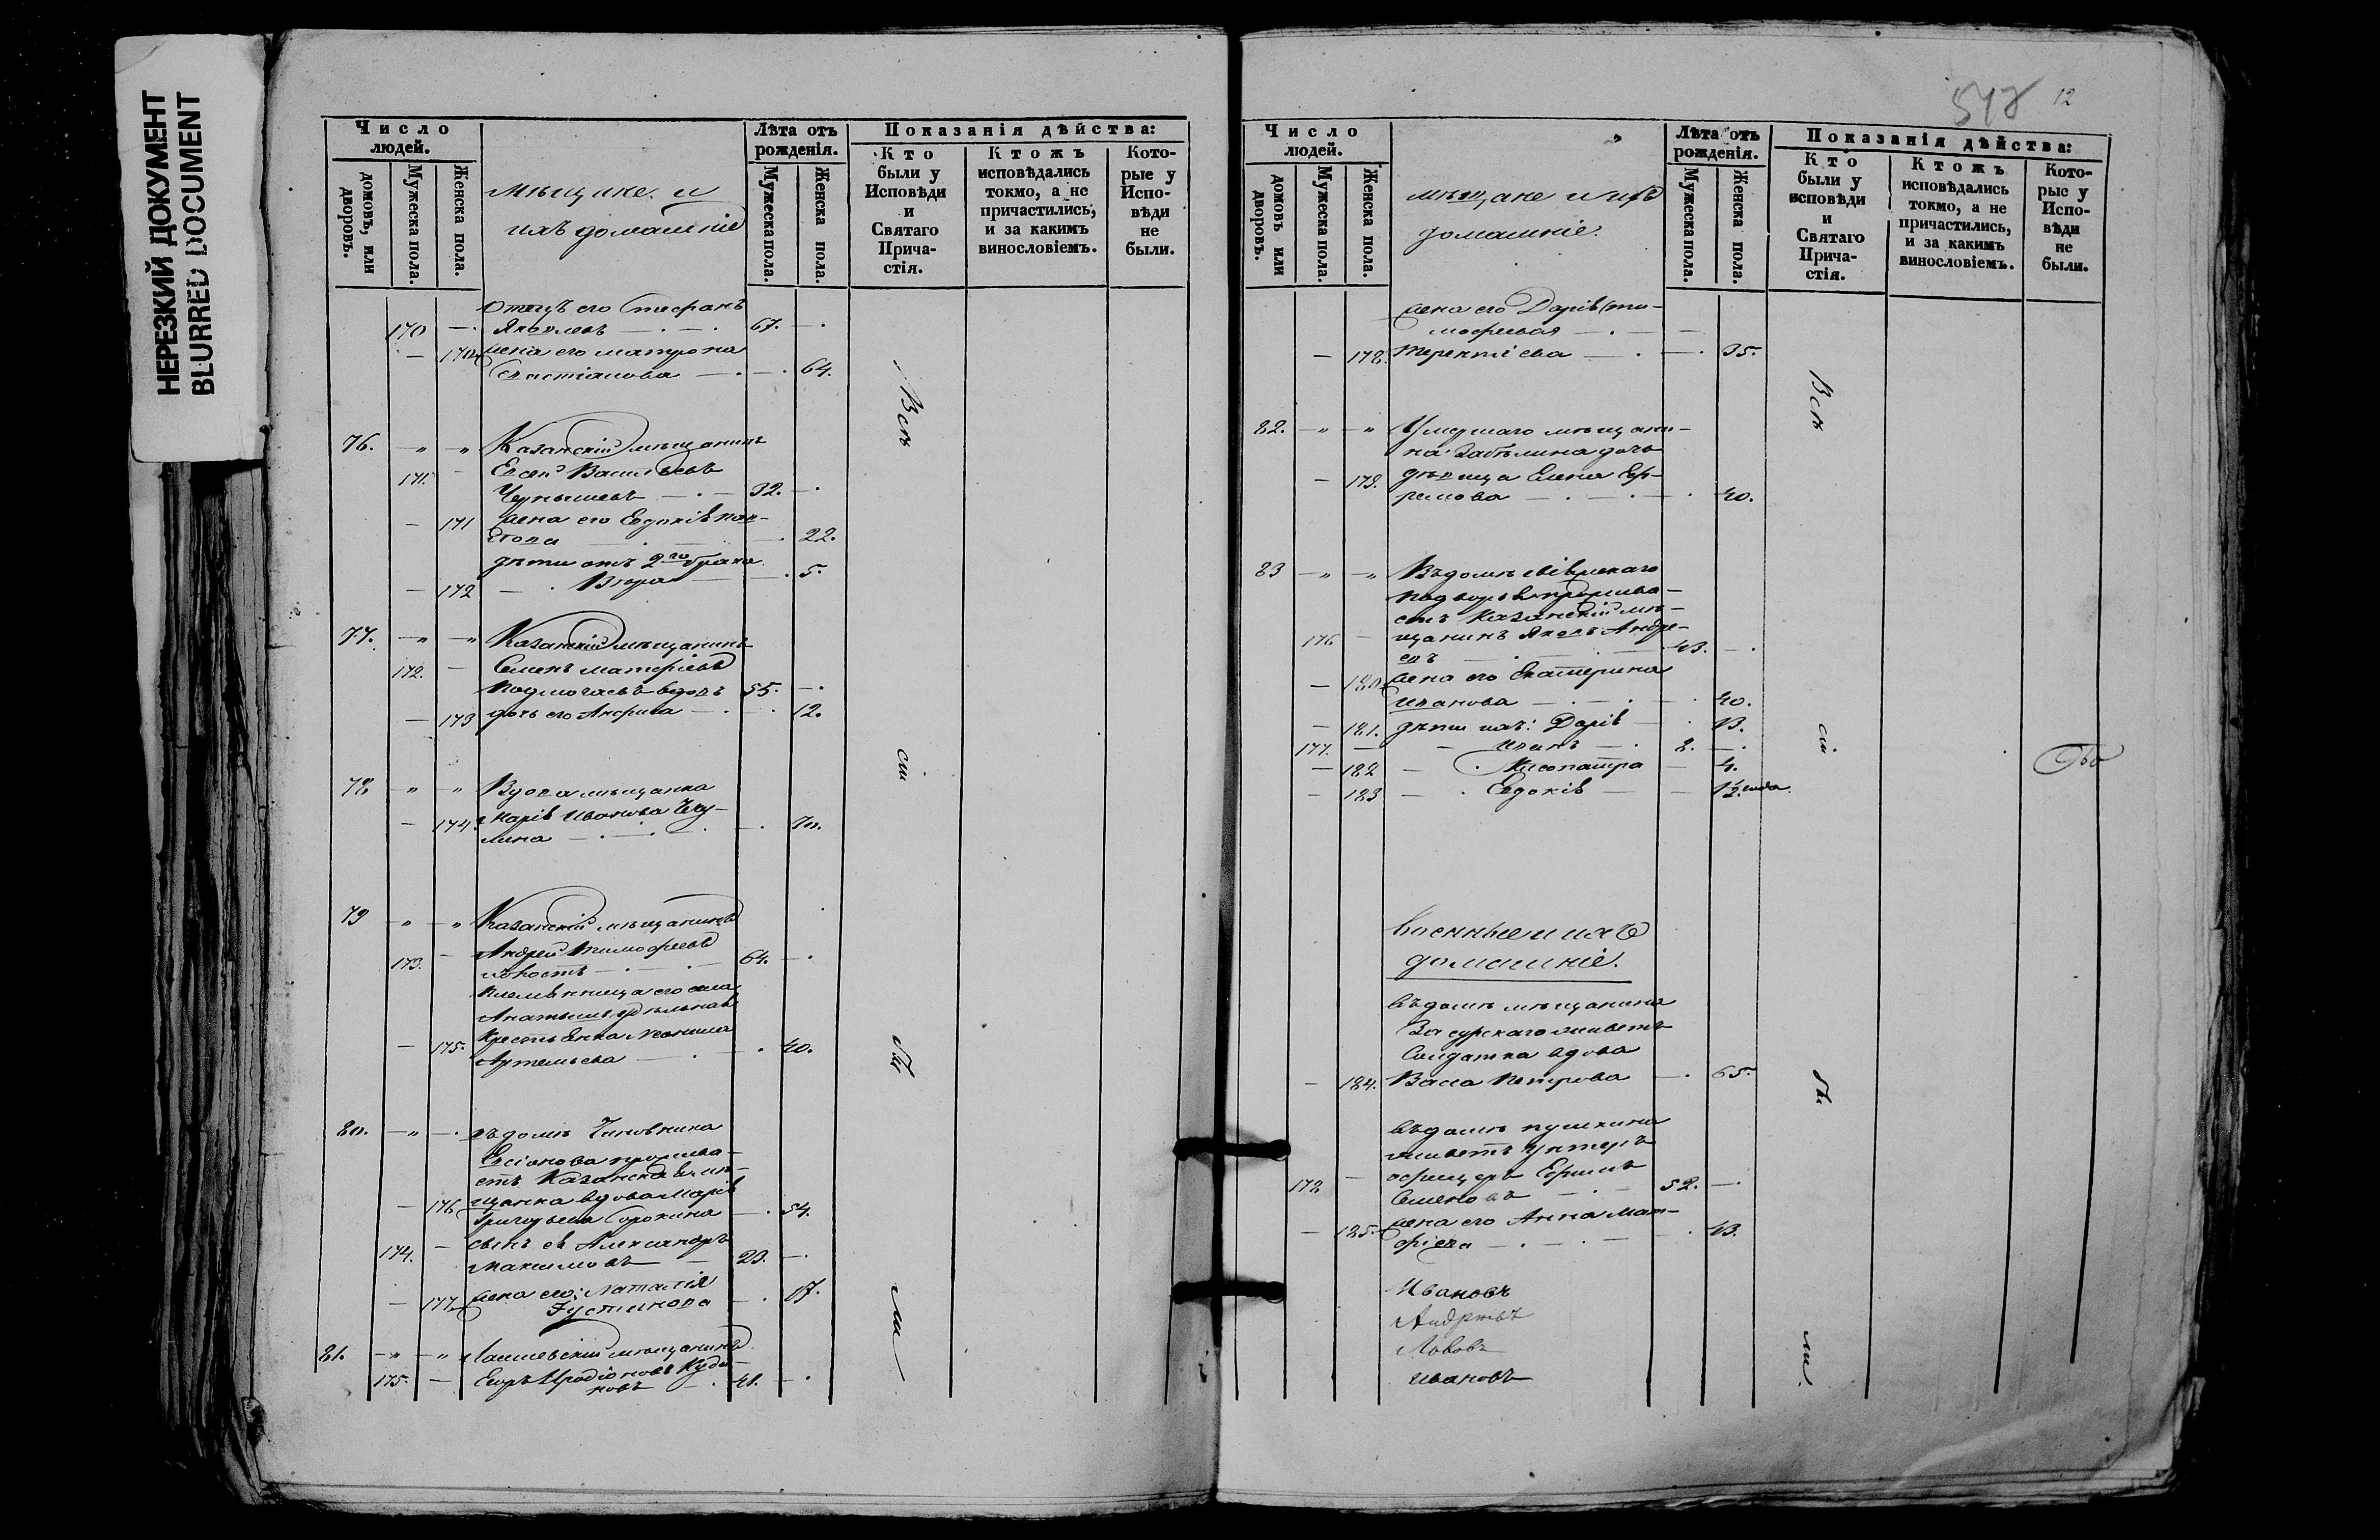 НЕРЕЗКИЙ ДОКУМЕНТ
BLURRED DOCUMENT
Число людей.
домовъ, или дворовъ.
Мужеска пола.
Женска пола.
мѣщане и
ихъ домашніе
Лѣта отъ рожденія.
Мужеска пола.
Женска пола.
Показанія дѣйства:
Кто были у Исповѣди и Святаго Причастія.
Ктожъ исповѣдались токмо, а не причастились, и за какимъ винословіемъ.
Которые у Исповѣди не были.
Отецъ его Стефанъ
170 — Яковлевъ — 67. —
жена его Матрона
— 64.
76. — " — " Казанскій мѣщанинъ
171. — Евсей Васильевъ
Чернышевъ — 32. —
— 171 жена его Евдокія
22.
дѣти отъ 2го брака
— 172 — Вѣра — 5.
77. — " — " Казанскій мѣщанинъ
172. — Семенъ Матвѣевъ
вдовъ 55. —
— 173 дочь его Анфиса — 12.
78 " " Вдова мѣщанка
— 174. Марія Иванова
лина — 70.
79 " " Казанскій мѣщанинъ
173. — Андрей Тимофеевъ
64. —
племянница его села
— 175. крестьянка
Артемьева — 40.
80. — " — въ домѣ Чиновника
прожива-
етъ Казанская мѣ-
— 176 щанка вдова Марія
Григорьева Сорокина — 54.
174. — сынъ ея Александръ
Максимовъ — 23. —
— 177. жена его: Наталія
Іустинова — 17.
81. — " — " мѣщанинъ
175. — Егоръ Иродіоновъ Куди-
новъ — 41. —
Всѣ
сіи
бы
ли
548 12
Число людей.
домовъ или дворовъ.
Мужеска пола.
Женска пола.
мѣщане и ихъ
домашніе.
Лѣта отъ рожденія.
Мужеска пола.
Женска пола.
Показанія дѣйства:
Кто были у исповѣди и Святаго Причастія.
Ктожъ исповѣдались токмо, а не причастились, и за какимъ винословіемъ.
Которые у Исповѣди не были.
жена его Дарія (ти-
мофеевая
— 178. Терентіева — 35.
82. — " — " Умершаго мѣщани-
на Забѣлина дочь
— 179. дѣвица Елена Еф-
ремова — 40.
83 — " — " Въ домѣ
подворья прожива-
етъ Казанскій мѣ-
176 — щанинъ Яковъ Андре-
евъ — 43. —
— 180. жена его Екатерина
Иванова — 40.
— 181. дѣти ихъ: Дарія — 13.
177. — Иванъ — 8. —
— 182 — Клеопатра — 4.
— 183 — Евдокія — 1½ года.
Военные и ихъ
домашніе.
Въ домѣ мѣщанина
Засурскаго живетъ
Солдатка вдова
— 184. Васса Петрова — 65.
Въ домѣ Пушкина
живетъ Унтеръ
178 — офицеръ Ефимъ
Семеновъ — 52. —
— 185. жена его Анна Мат-
фіева — 43.
Ивановъ
Андреевъ
Львовъ
Ивановъ
Всѣ
сіи
бы
ли.